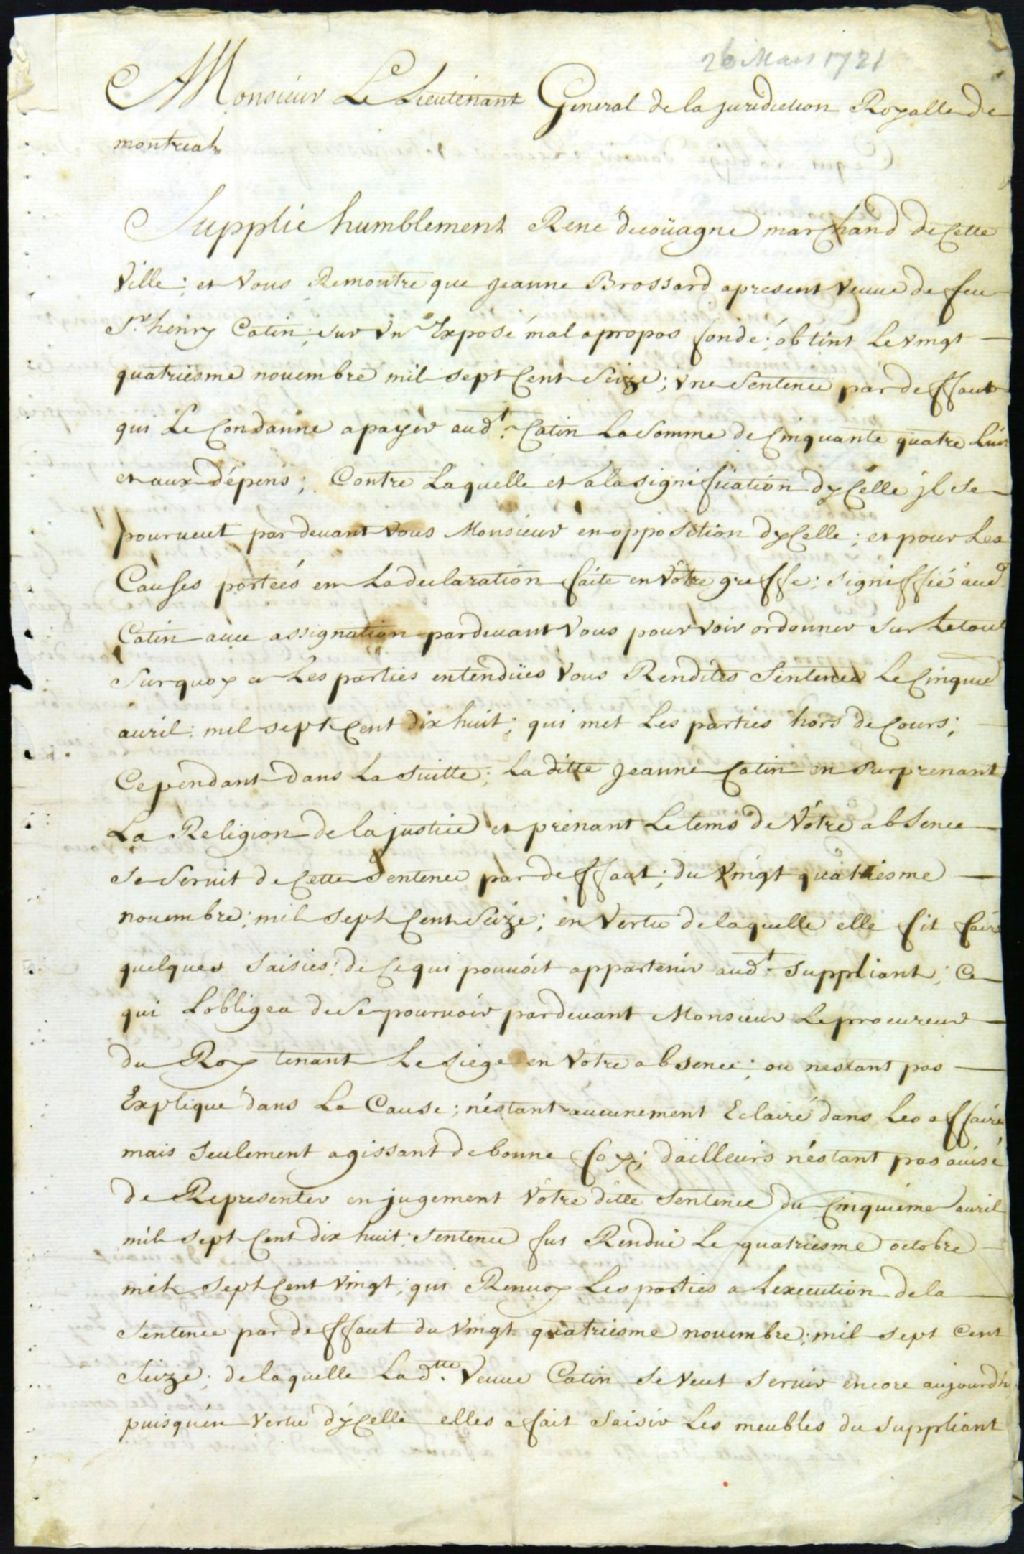 26 Mars 1721
A Monsieur Le Lieutenant General de la juridiction Royalle de
montreal
Supplie humblement René decoüagne marchand de Cette
Ville; et Vous Remontre que jeanne Brossard apresent Veuue de feu
Sr. henry Catin; sur Vn Exposé mal apropos fondé; obtint Le Vingt
quatriesme nouembre mil sept Cent Seize; Vne Sentence par deffaut
qui Le Condanne apayer audt. Catin La Somme de Cinquante quatre Liur
et aux dépens; Contre Laquelle et ala signification dyCelle jl se
pourueut par deuant Vous Monsieur en opposition dyCelle; et pour Les
Causes portéés en La declaration faite en Vôtre greffe; signiffié aud
Catin auec assignation pardeuant Vous pour voir ordonner sur Letout
Surquoy a Les parties entendües Vous Rendites Sentence Le Cinquie
auril; mil sept Cent dix huit; qui met Les parties hors de Cours;
Cependant dans La Suitte; La ditte jeanne Catin en Surprenant
La Religion de la justice et prenant Le tems de Vôtre absence
se seruit de Cette Sentence par deffaut; du Vingt quatriesme
nouembre; mil sept Cent Seize; en Vertu de laquelle elle fit faire
quelques saisies; de Ce qui pouuoit appartenir audt. suppliant; Ce
qui Lobligea de Se pouruoir pardeuant Monsieur Le procureur
du Roy tenant Le Siege en Votre absence; ou nestant pas
Expliqué dans La Cause; néstant aucunement Eclairé dans Les affaires
mais seulement agissant de bonne foy; dailleurs néstant pas auisé
de Representer en jugement Vôtre ditte Sentence du Cinquiéme auril
mil sept Cent dix huit Sentence fut Rendüe Le quatriesme octobre
mil sept Cent Vingt; qui Renuoy Les parties a Lexecution de la
Sentence par deffaut du Vingt quatriesme nouembre; mil sept Cent
Seize; de laquelle Ladtte. Veuue Catin se Veut seruir encore aujourdh
puisquén Vertu dyCelle elles a fait saisir Les meubles du suppliant